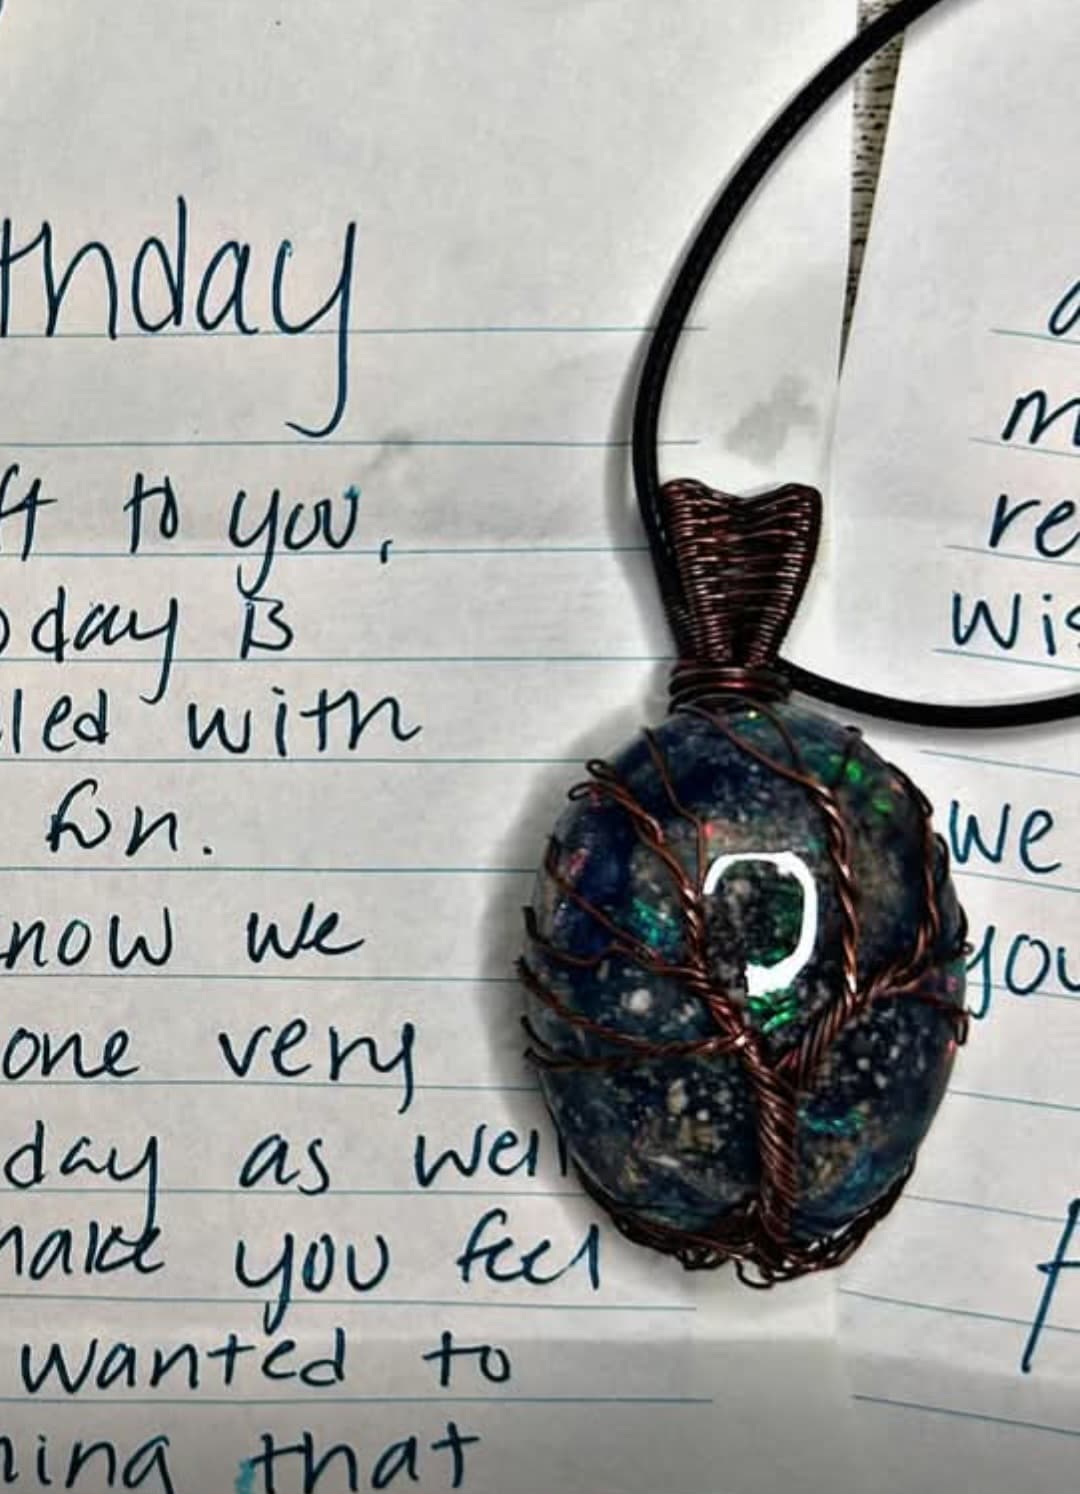 thday
ft to you,
oday is
led with
fun.
now we
one very
day as well
make you feel
wanted to
hing that
a
m
re
wis
we
you